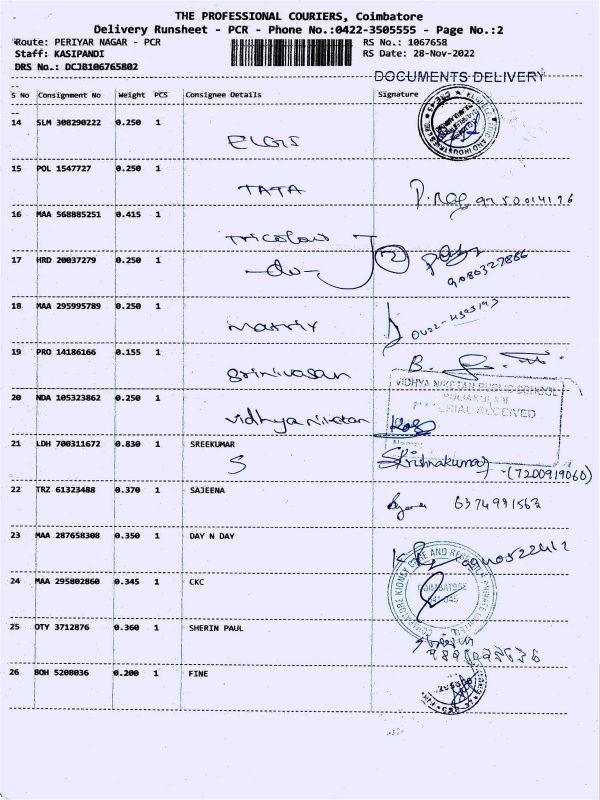 THE PROFESSIONAL COURIERS, Coimbatore
Delivery Runsheet - PCR - Phone No.:0422-3505555 - Page No.:2
Route: PERIYAR NAGAR - PCR RS No.: 1067658
Staff: KASIPANDI RS Date: 28-Nov-2022
DRS No.: DCJB106765802
DOCUMENTS DELIVERY
S No Consignment No Weight PCS Consignee Details Signature
14 SLM 308290222 0.250 1
ELGIS
15 POL 1547727 0.250 1
TATA
16 MAA 568885251 0.415 1
Tricolour
17 HRD 20037279 0.250 1
-do- 2
9080327886
18 MAA 295995789 0.250 1
Matrix
19 PRO 14186166 0.155 1
Srinivasan
20 NDA 105323862 0.250 1
VIDHYA NIKETAN PUBLIC SCHOOL
RECEIVED
Vidhyaniketan
21 LDH 700311672 0.830 1 SREEKUMAR
S Srikrishnakumar -(7200919060)
22 TRZ 61323488 0.370 1 SAJEENA
6374991563
23 MAA 287658308 0.350 1 DAY N DAY
24 MAA 295802860 0.345 1 CKC
COIMBATORE KIDNEY CARE AND
COIMBATORE
25 OTY 3712876 0.360 1 SHERIN PAUL
26 BOH 5208036 0.200 1 FINE